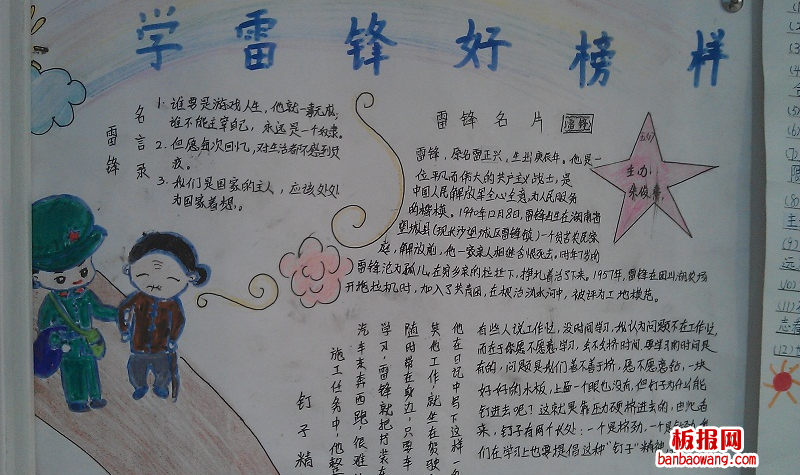 学雷锋好榜样
雷锋
名言录
1. 谁若是游戏人生,他就一事无成;
谁不能主宰自己,永远是一个奴隶。
2. 但愿每次回忆,对生活都不感到负
疚。
3. 我们是国家的主人,应该处处
为国家着想。
雷锋名片
主办:
雷锋,原名雷正兴,生
他是一
位平凡而伟大的共产主义战士,是
中国人民解放军全心全意为人民服务
的楷模。1940年12月8日,雷锋出生在湖南省
望城县(现长沙望城区雷锋镇)一个贫苦农民家
庭,解放前,他一家亲人相继含恨死去。时年7岁的
雷锋沦为孤儿,在穷乡亲的拉扯下,挣扎着活了下来。1957年,雷锋在团山湖农场
开拖拉机时,加入了共青团,在根治沩水河中,被评为工地模范。
钉子精
施工任务中,他整
汽车东奔西跑,很难
学习,雷锋就把书装在
随时带在身边,只要车
他在日记中写下这样
有些人说工作忙,没时间学习,我认为问题不在工作忙,
而在于你愿不愿意学习,会不会挤时间。要学习的时间是
有的,问题是我们善不善于挤,愿不愿意钻,一块
好好的木板,上面一个眼也没有,但钉子为什么能
钉进去呢?这就是靠压力硬挤进去的,由此看
来,钉子有两个长处:一个是挤劲,一个是钻劲,我
们在学习上也要提倡这种“钉子”精神
板报网
banbaowang.com